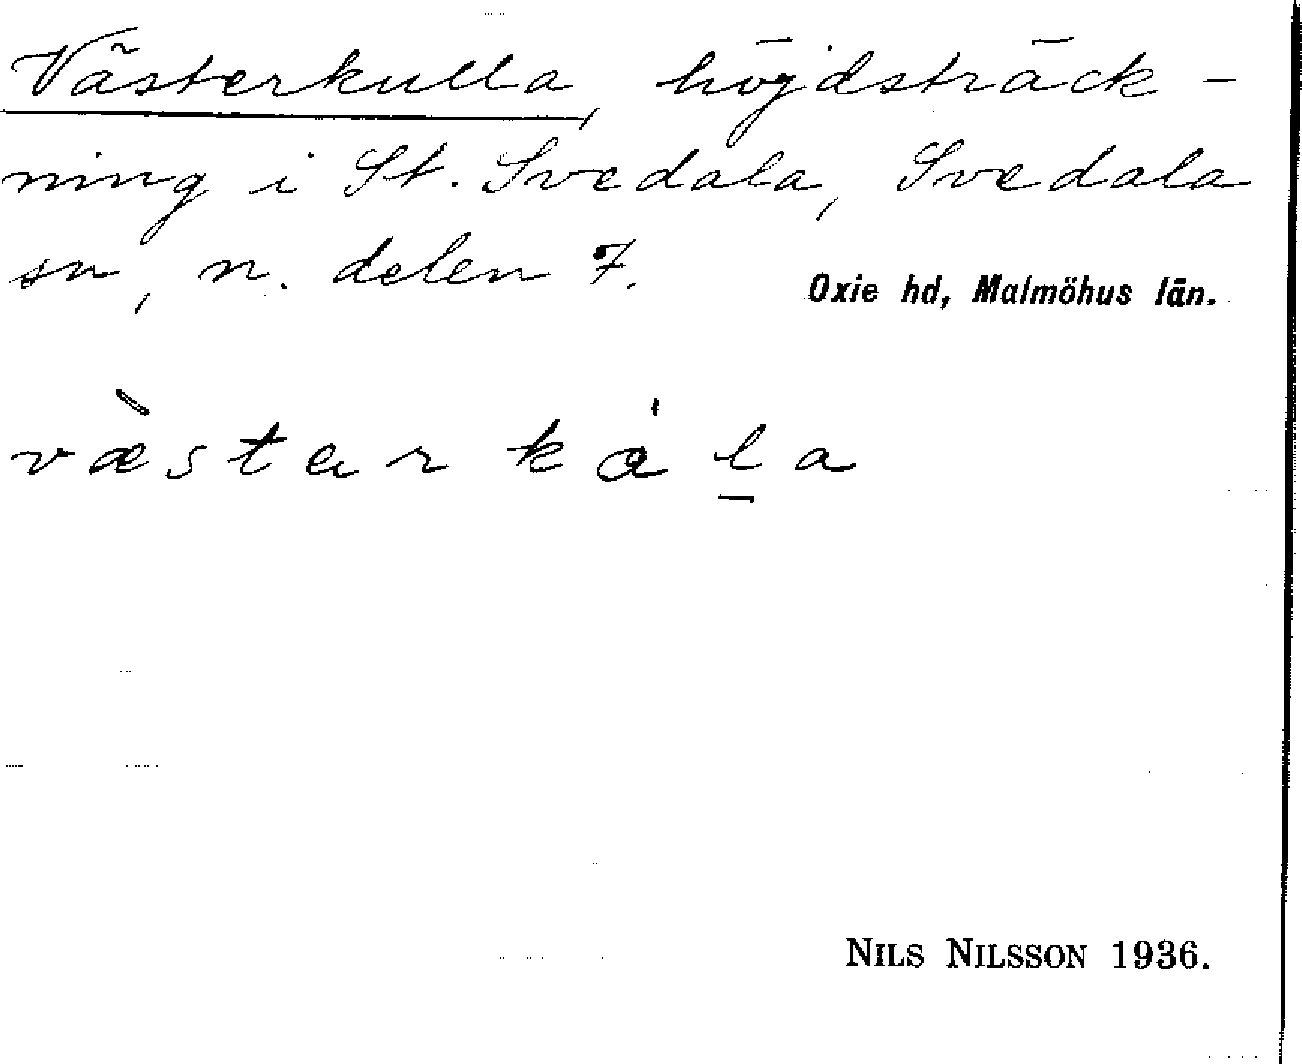 Västerkulla, höjdsträck-
ning i St. Svedala, Svedala
sn, n. delen 7.
Oxie hd, Malmöhus län.
væ̀starkȧl̠a
NILS NILSSON 1936.